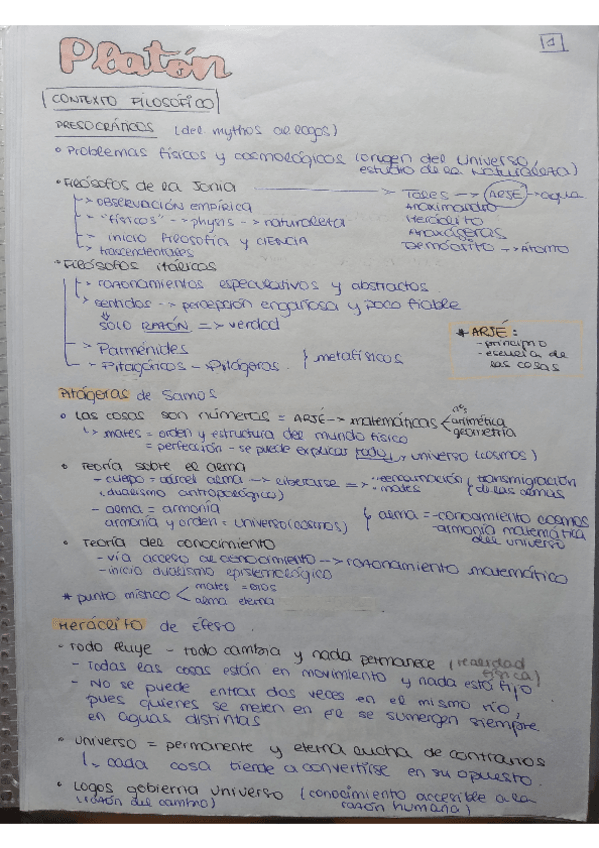 1
Platón
CONTEXTO FILOSÓFICO
PRESOCRÁTICOS (del mythos al logos)
• Problemas físicos y cosmológicos (origen del universo,
estudio de la Naturaleza)
• Filósofos de la Jonia ——> Tales --> ARJÉ -> agua
↳ OBSERVACIÓN EMPÍRICA Anaximandro
↳ "físicos" --> physis --> naturaleza Heráclito
↳ inicio Filosofía y CIENCIA Anaxágoras
↳ trascendentales Demócrito --> Átomo
• Filósofos itálicos
↳ razonamientos especulativos y abstractos
↳ sentidos --> percepción engañosa y poco fiable
SOLO RAZÓN => verdad
* ARJÉ:
- principio
- escuela de
las cosas
↳ Parménides
↳ Pitagóricos - Pitágoras } metafísicos
Pitágoras de Samos
• Las cosas son números = ARJÉ --> matemáticas < aritmética
geometría
↳ mates = orden y estructura del mundo físico
= perfección - se puede explicar todo, universo (cosmos)
• Teoría sobre el alma
- cuerpo = cárcel alma --> liberarse => reencarnación } transmigración
(dualismo antropológico) mates de las almas
- alma = armonía
armonía y orden = universo (cosmos) } alma = - conocimiento cosmos
- armonía matemática
del universo
• Teoría del conocimiento
- vía acceso al conocimiento --> razonamiento matemático
- inicio dualismo epistemológico
* punto místico < mates = dios
alma eterna
Heráclito de Éfeso
• Todo fluye - todo cambia y nada permanece (realidad
física)
- Todas las cosas están en movimiento y nada está fijo
- No se puede entrar dos veces en el mismo río,
pues quienes se meten en él se sumergen siempre
en aguas distintas
• Universo = permanente y eterna lucha de contrarios
↳ cada cosa tiende a convertirse en su opuesto.
• Logos gobierna universo (conocimiento accesible a la
(razón del cambio) razón humana)